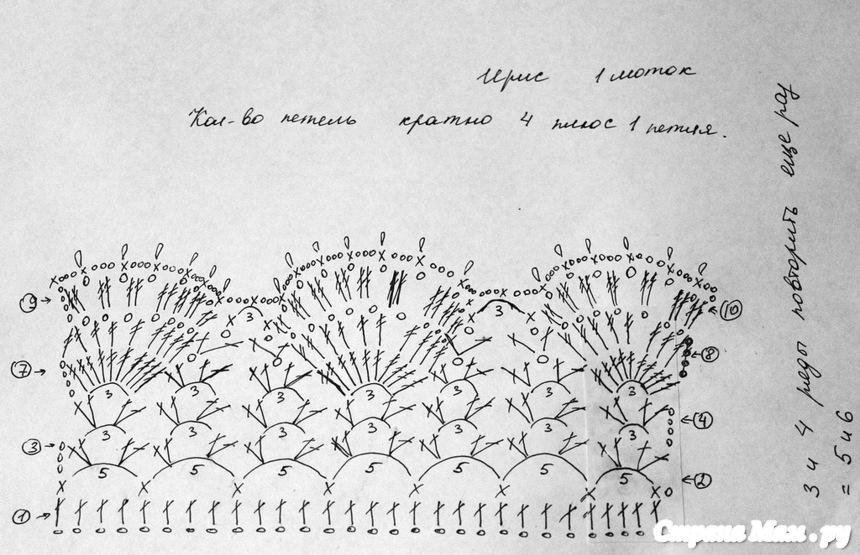 Ирис 1 моток
Кол-во петель кратно 4 плюс 1 петля.
3 и 4 ряды повторить еще раз
= 5 и 6
9
10
3
3
7
8
3
3
3
3
3
3
3
3
3
3
3
3
4
3
5
5
5
5
5
5
5
2
1
Страна Мам.ру